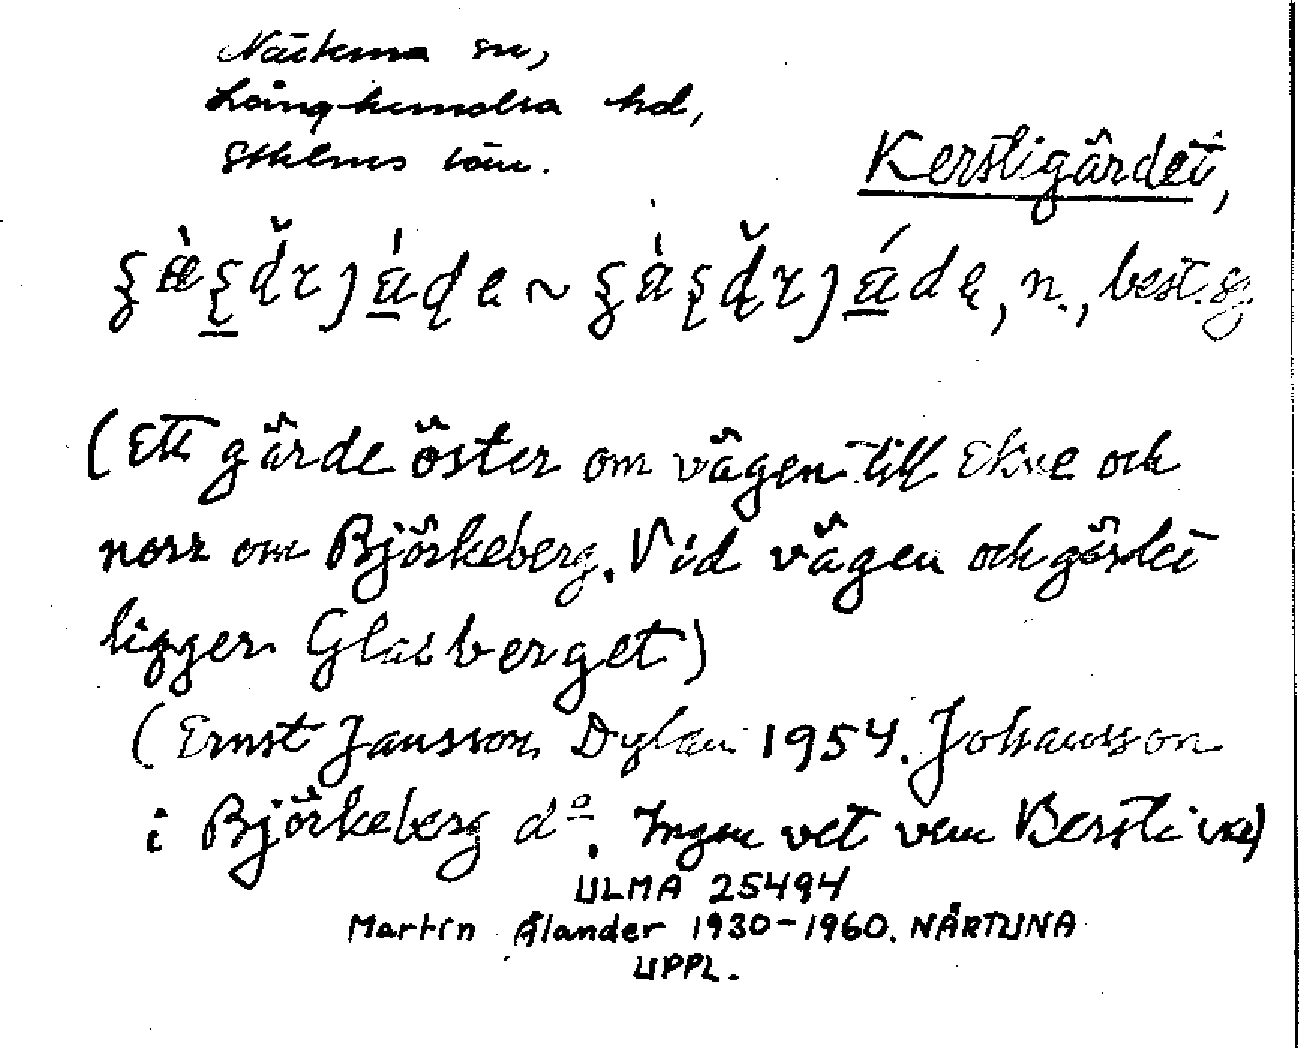 Närtuna sn,
Långhundra hd,
Sthlms län.
Kerstigärdet,
n., best. sg
(Ett gärde öster om vägen till Ekne och
norr om Björkeberg. Vid vägen och gärdet
ligger Glasberget)
(Ernst Jansson, Dylan 1954. Johansson
i Björkeberg dº. Ingen vet vem Bersti var)
ULMA 25494
Martin Ålander 1930-1960. NÄRTUNA
UPPL.